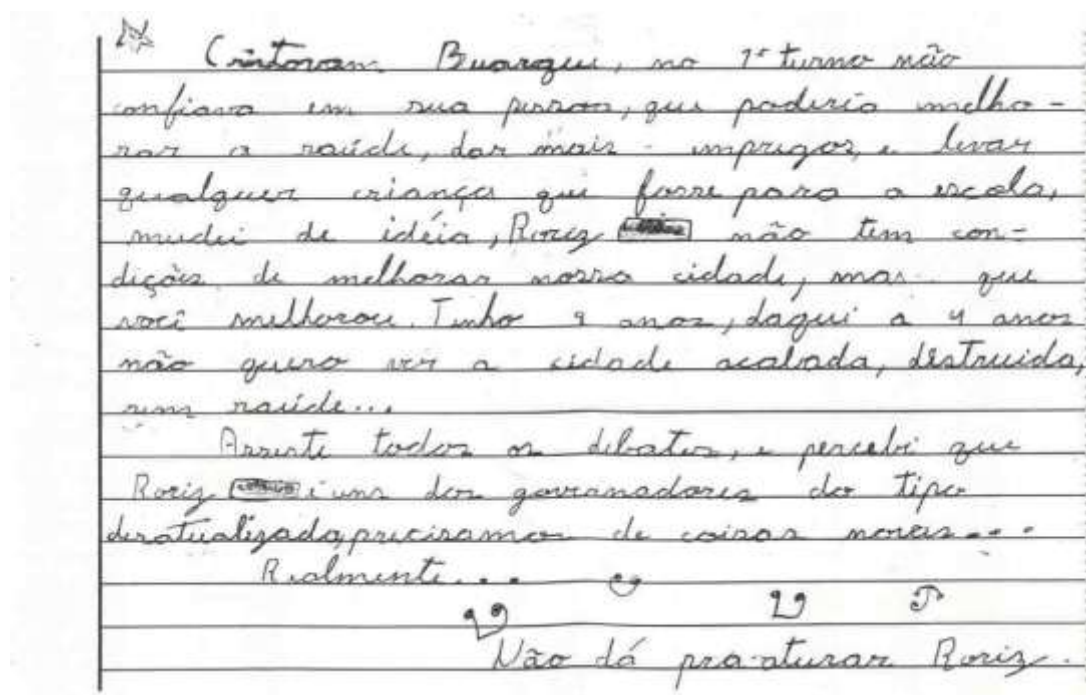 Cristovam Buarque, no 1º turno não
confiava em sua pessoa, que poderia melho-
rar a saúde, dar mais empregos, e levar
qualquer criança que fosse para a escola,
mudei de idéia, Roriz não tem con-
dições de melhorar nossa cidade, mas que
você melhorou. Tenho 9 anos, daqui a 4 anos
não quero ver a cidade acabada, destruida,
sem saúde...
Assisti todos os debates, e percebi que
Roriz é uns dos governadores do tipo
desatualizado, precisamos de coisas novas...
Realmente...
Não dá pra aturar Roriz.